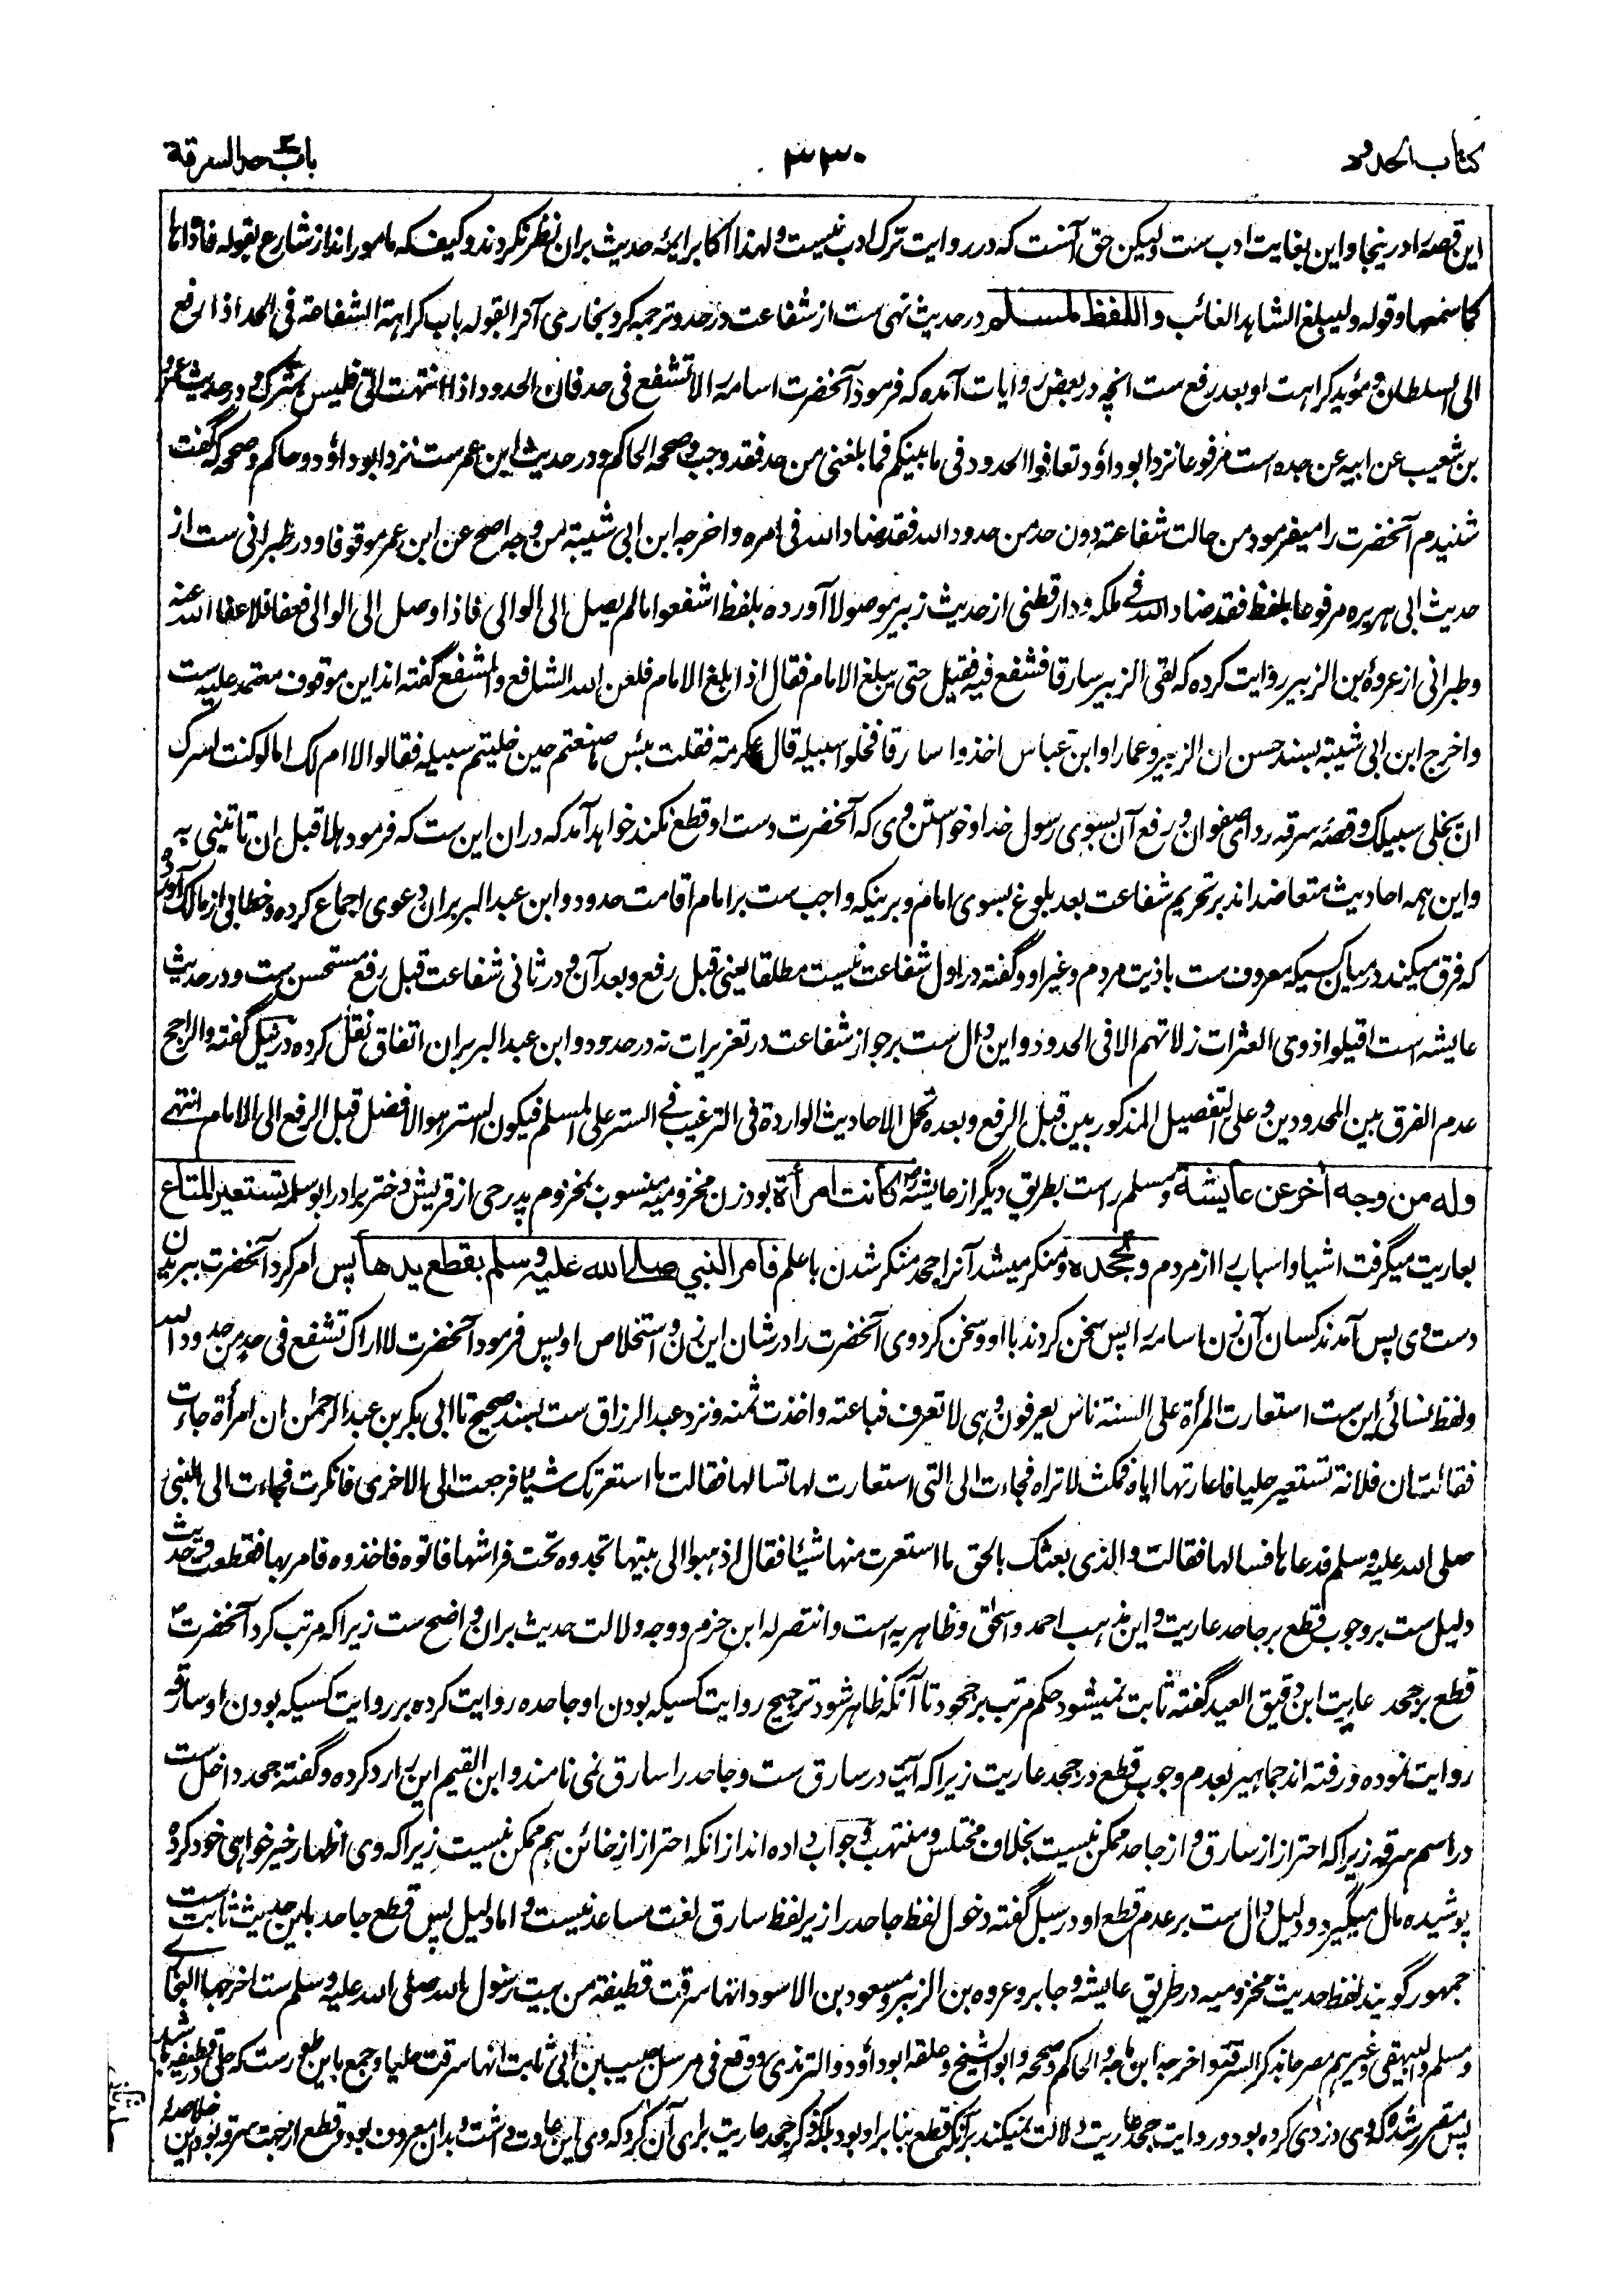 کتاب الحدود
۳۳۰
باب حد السرقة
این قصه را درینجا و این بغایت ادب ست ولیکن حق آنست که در روایت ترک ادب نیست و لهذا اکابر ایمهٔ حدیث بران نظر نکردند و کیف که مامور اند از شارع بقوله فاداها
کما سمعها و قوله و لیبلغ الشاهد الغائب واللفظ لمسلم در حدیث نهی ست از شفاعت در حد و ترجمه کرد بخاری آنرا بقوله باب کراهة الشفاعة فی الحد اذا رفع
الی السلطان و مؤید کراهت او بعد رفع ست انچه در بعض روایات آمده که فرمود آنحضرت اسامه را لا تشفع فی حد فان الحدود اذا انتهت الیّ فلیس بمترک و در حدیث عمرو
بن شعیب عن ابیه عن جده است مرفوعا نزد ابوداؤد تعافوا الحدود فی ما بینکم فما بلغنی من حد فقد وجب و صححه الحاکم و در حدیث ابن عمرست نزد ابوداؤد و حاکم و صححه که گفت
شنیدم آنحضرت را میفرمود من حالت شفاعته دون حد من حدود الله فقد ضاد الله فی امره و اخرجه ابن ابی شیبة من وجه اصح عن ابن عمر موقوفا و در طبرانی ست از
حدیث ابی هریره مرفوعا بلفظ فقد ضاد الله فی ملکه و دارقطنی از حدیث زبیر موصولا آورده بلفظ اشفعوا ما لم یصل الی الوالی فاذا وصل الی الوالی فعفا فلا عفا الله عنه
و طبرانی از عروة بن الزبیر روایت کرده که لقی الزبیر سارقا فشفع فیه فقیل حتی یبلغ الامام فقال اذا بلغ الامام فلعن الله الشافع و المشفع گفته اند این موقوف معتمد علیه ست
و اخرج ابن ابی شیبة بسند حسن ان الزبیر و عمارا و ابن عباس اخذوا سارقا فخلوا سبیله قال عکرمة فقلت بئس ما صنعتم حین خلیتم سبیله فقالوا لا ام لک اما لو کنت لسرک
ان یخلی سبیلک و قصهٔ سرقه ردای صفوان و رفع آن بسوی رسول خدا و خواستن وی که آنحضرت دست او قطع نکند خواهد آمد که دران این ست که فرمود هلا قبل ان تاتینی به
و این همه احادیث متعاضد اند بر تحریم شفاعت بعد بلوغ بسوی امام و برینکه واجب ست بر امام اقامت حدود و ابن عبد البر بران دعوی اجماع کرده و خطابی از مالک آورده
که فرق میکند در میان کسیکه معروف ست باذیت مردم و غیر او و گفته در اول شفاعت نیست مطلقا یعنی قبل رفع و بعد آن و در ثانی شفاعت قبل رفع مستحسن ست و در حدیث
عایشه است اقیلوا ذوی العثرات زلاتهم الا فی الحدود و این دال ست بر جواز شفاعت در تعزیرات نه در حدود و ابن عبد البر بران اتفاق نقل کرده در نیل گفته و الراجح
عدم الفرق بین المحدودین و علی التفصیل المذکور بین قبل الرفع و بعده تحمل الاحادیث الواردة فی الترغیب فی الستر علی المسلم فیکون الستر هو الافضل قبل الرفع الی الامام انتهی
وله من وجه اخر عن عایشة و مسلم راست بطریق دیگر از عایشه کانت امرأة بود زن مخزومیه منسوب بمخزوم پدر حی از قریش دختر برادر ابوسلمه تستعیر المتاع
بعاریت میگرفت اشیا و اسباب را از مردم وتجحده و منکر میشد آنرا جحد منکر شدن با علم فامر النبی صلی الله علیه وسلم بقطع یدها پس امر کرد آنحضرت ببریدن
دست وی پس آمدند کسان آن زن اسامه را پس سخن کردند با او و سخن کرد وی آنحضرت را در شان این زن و استخلاص او پس فرمود آنحضرت لا اراک تشفع فی حد من حدود الله
و لفظ نسائی این ست استعارت المرأة علی السنة ناس یعرفون و هی لا تعرف فباعته و اخذت ثمنه و نزد عبد الرزاق ست بسند صحیح تا ابی بکر بن عبد الرحمن ان امرأة جاءت
فقالت ان فلانة تستعیر حلیا فاعارتها ایاه فمکث لا تراه فجاءت الی التی استعارت لها تسالها فقالت ما استعرتک شیئا فرجعت الی الاخری فانکرت فجاءت الی النبی
صلی الله علیه وسلم فدعاها فسالها فقالت و الذی بعثک بالحق ما استعرت منها شیئا فقال اذهبوا الی بیتها تجدوه تحت فراشها فاتوه فاخذوه فامر بها فقطعت و حدیث
دلیل ست بر وجوب قطع بر جاحد عاریت و این مذهب احمد و اسحٰق و ظاهریه است و انتصر له ابن حزم و وجه دلالت حدیث بران واضح ست زیراکه مرتب کرد آنحضرت
قطع بر جحد عاریت ابن دقیق العید گفته ثابت نمیشود حکم مرتب بر جحود تا آنکه ظاهر شود ترجیح روایت کسیکه بودن او جاحده روایت کرده بر روایت کسیکه بودن او سارقه
روایت نموده و رفته اند جماهیر بعدم وجوب قطع در جحد عاریت زیراکه آیت در سارق ست و جاحد را سارق نمی نامند و ابن القیم این را رد کرده و گفته جحد داخل ست
در اسم سرقه زیراکه احتراز از سارق و از جاحد ممکن نیست بخلاف مختلس و منتهب و جواب داده اند از انکه احتراز از خائن هم ممکن نیست زیراکه وی اظهار خیر خواهی خود کرده
پوشیده مال میگیرد و دلیل دال ست بر عدم قطع او در سبل گفته دخول لفظ جاحد را زیر لفظ سارق لغت مساعد نیست و اما دلیل پس قطع جاحد باین حدیث ثابت ست
جمهور گویند لفظ حدیث مخزومیه در طریق عایشه و جابر و عروه بن الزبیر و مسعود بن الاسود انها سرقت قطیفة من بیت رسول الله صلی الله علیه وسلم ست اخرجها البخاری
و مسلم و البیهقی و غیرهم مصرحا بذکر السرقة و اخرجه ابن ماجه و الحاکم و صححه و ابو الشیخ و علقه ابوداؤد و الترمذی و وقع فی مرسل حبیب بن ابی ثابت انها سرقت حلیا و جمع باین طور ست که حلی در قطیفه باشد
پس مقرر شده که وی دزدی کرده بود و روایت جحد عاریت دلالت نمیکند بر آنکه قطع بنا بر او بود بلکه ذکر جحد عاریت برای آن کرد که وی این عادت داشت و بدان معروف بود و قطع از جهت سرقه بود این خلاصهٔ